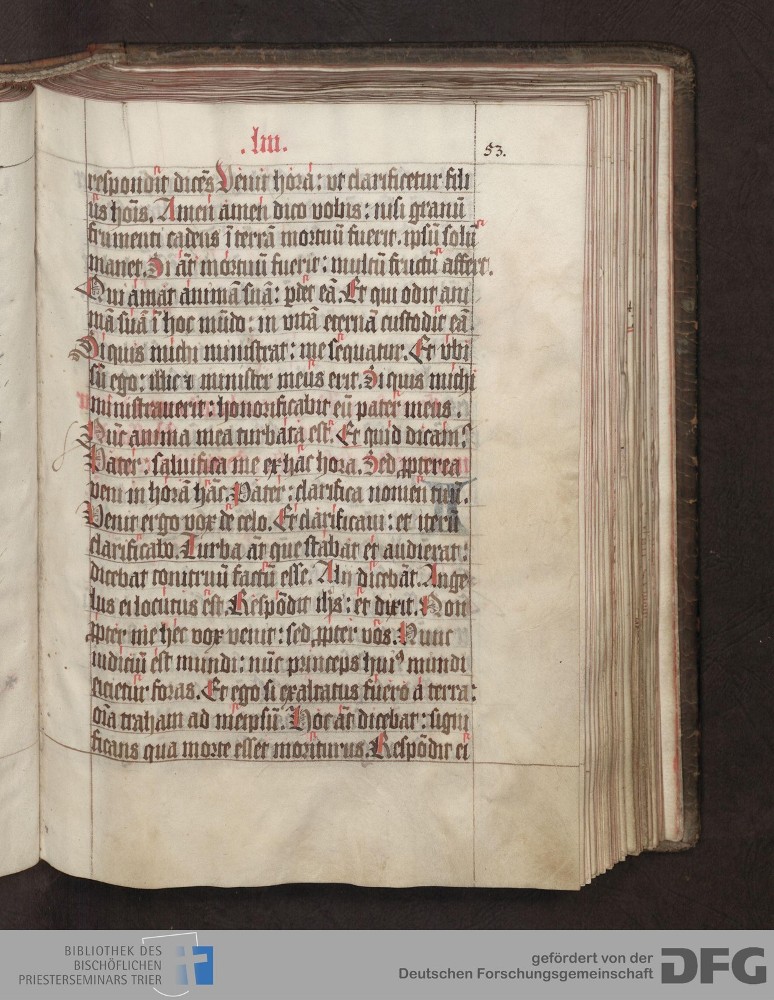 .liii.
53.
respondit dicēs Venit hora: ut clarificetur fili
us hoīs. Amen amen dico vobis: nisi granū
frumenti cadens ī terrā mortuū fuerit. ipsū solū
manet. Si āt mortuū fuerit: multū fructū affert.
Qui amat animā suā: ꝑdet eā. Et qui odit ani
mā suā ī hoc mūdo: in vitā eternā custodit eā.
Si quis michi ministrat: me sequatur. Et ubi
sū ego: illic ⁊ minister meus erit. Si quis michi
ministrauerit: honorificabit eū pater meus.
Nūc anima mea turbata est. Et quid dicam?
Pater: saluifica me ex hāc hora. Sed ꝓpterea
veni in horā hāc. Pater: clarifica nomen tuū.
Venit ergo vox de celo. Et clarificaui: et iterū
clarificabo. Turba āt que stabat et audierat:
dicebat tonitruū factū esse. Alii dicebāt. Ange
lus ei locutus est. Respōdit ihs: et dixit. Non
ꝓpter me hec vox venit: sed ꝓpter vos. Nunc
iudiciū est mundi: nūc princeps huiꝰ mundi
eicietur foras. Et ego si exaltatus fuero a terra:
oīa traham ad meipsū. Hoc āt dicebat: signi
ficans qua morte esset moriturus. Respōdit ei
BIBLIOTHEK DES
BISCHÖFLICHEN
PRIESTERSEMINARS TRIER
gefördert von der
Deutschen Forschungsgemeinschaft
DFG